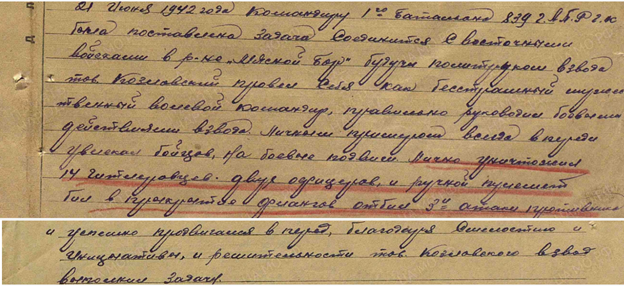 21 Июня 1942 года Командиру 1го Баталиона 839
была поставлена Задача Соединится С восточными
войсками в р-не „Мясной Бор" будучи политруком взвода
тов Козловский провел Себя как бесстрашный мужес
твенный волевой Командир, правильно руководил боевыми
действиями взвода. Личным примером всегда в переди
увлекал бойцов, на боевые подвиги. Лично уничтожил
14 гитлеровцев. двух офицеров, и ручной пулемет
бил в прикрытие флангов отбил 3и атаки противника
и успешно продвигался в перед, благодаря Смелостию и
Инициативы, и решительности тов Козловского взвод
выполнил Задачу.